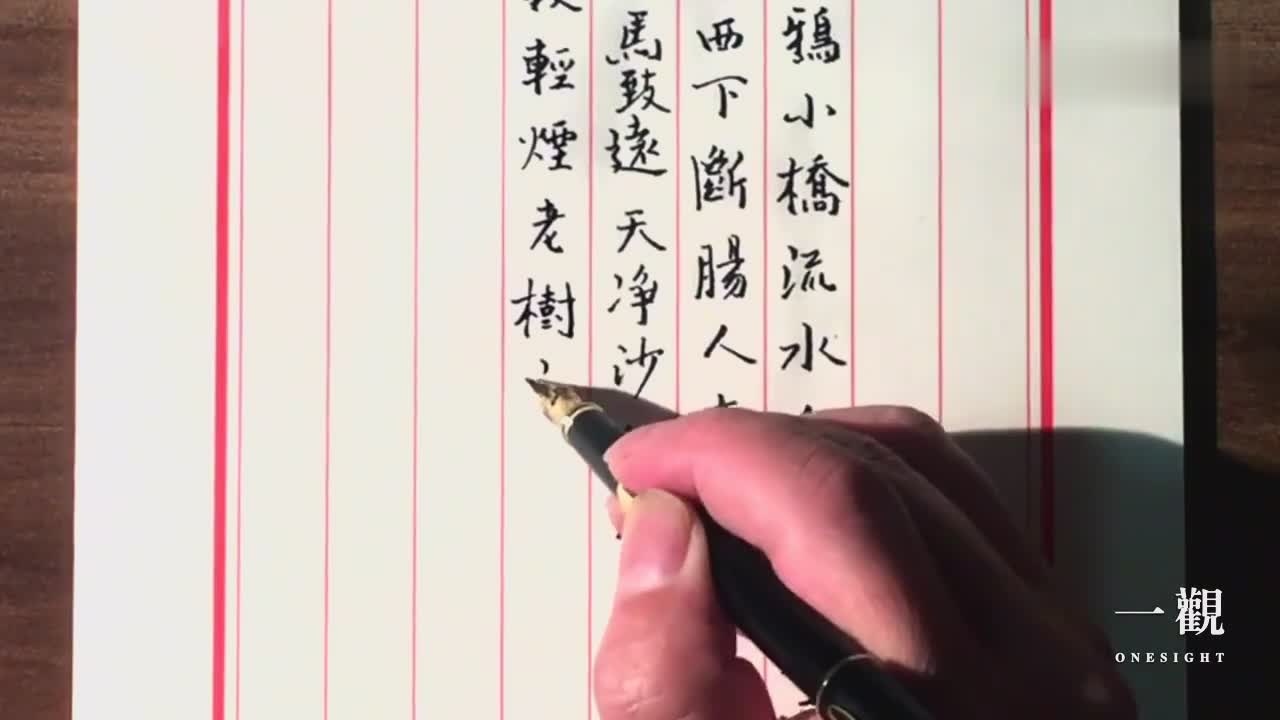 鴉小橋流水
西下斷腸人
馬致遠 天净沙
輕煙老樹
一觀
ONESIGHT